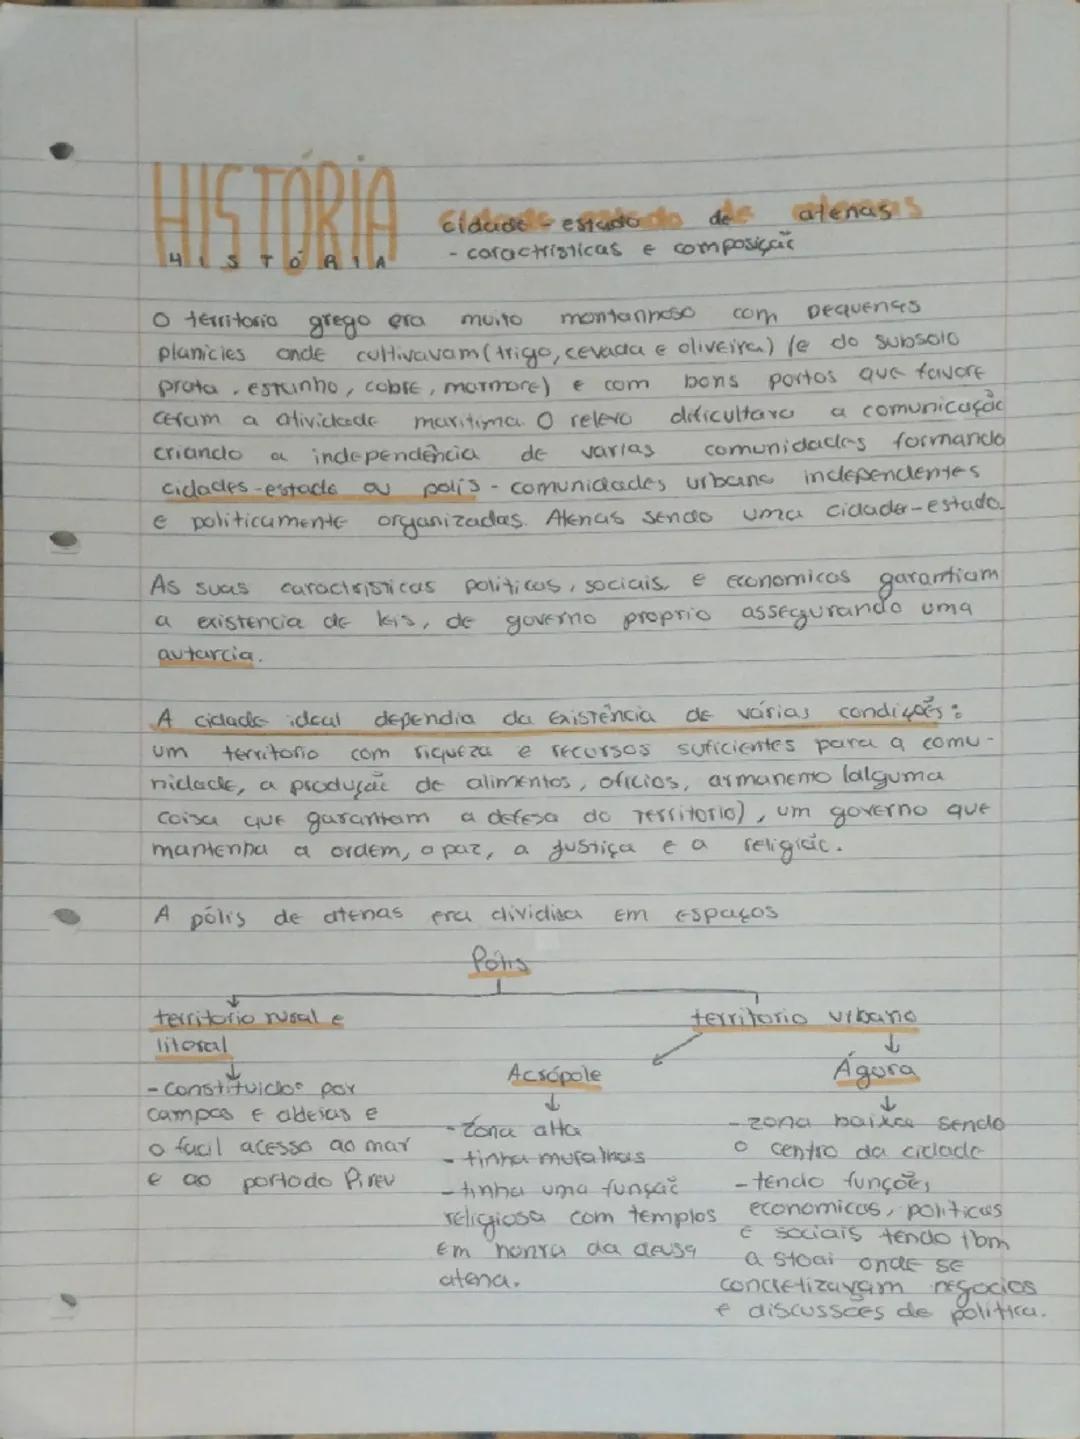 HISTÓRIA
HISTÓRIA
cidade-estado de atenas
- caractristicas e composição
O territorio grego era muito montanhoso com pequenas
planicies onde cultivavam (trigo, cevada e oliveira) (e do subsolo
prata, estanho, cobre, marmore) e com bons portos que favore
ceram a atividade maritima. O relevo dificultara a comunicação
criando a independência de varias comunidades formando
cidades-estado ou polis - comunidades urbana independentes
e politicamente organizadas. Atenas sendo uma cidade-estado.
As suas caractristicas politicas, sociais, e economicas garantiam
a existencia de leis, de governo proprio assegurando uma
autarcia.
A cidade ideal dependia da existência de várias condições:
um territorio com riqueza e recursos suficientes para a comu-
nidade, a produção de alimentos, oficios, armanento (alguma
coisa que garantam a defesa do territorio), um governo que
mantenha a ordem, a paz, a justiça e a religião.
A pólis de atenas era dividisa em espaços
Pólis
territorio rural e
litoral
- constituidos por
campos e aldeias e
o facil acesso ao mar
e ao portodo Pireu
territorio urbano
Acrópole
- zona alta
- tinha muralhas
- tinha uma função
religiosa com templos
em honra da deusa
atena.
Ágora
- zona baixa sendo
o centro da cidade
- tendo funções
economicas, politicas
e sociais tendo tbm
a stoai onde se
concretizavam negocios
e discussões de politica.